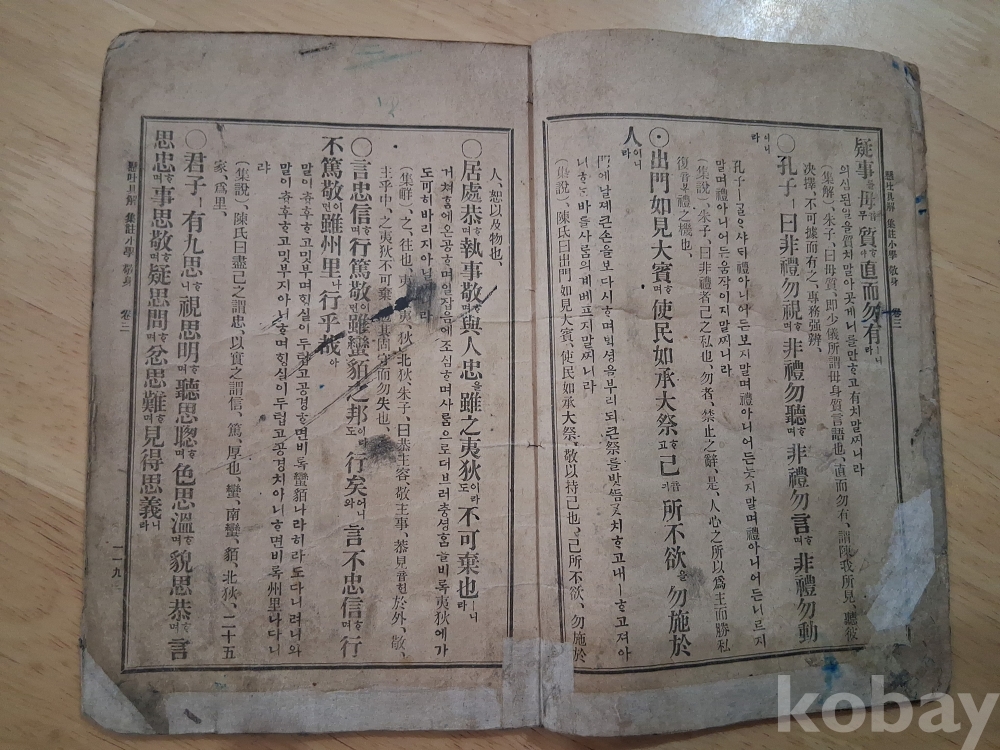 懸吐具解 集註小學 敬身 卷三
疑事를毋音무質하야直而勿有ㅣ니라
의심된일을質치말아곳게니를만하고有치말찌니라
(集解)、朱子、曰毋質、即少儀所謂毋身質言語也、直而勿有、謂陳我所見、聽彼
决擇、不可據而有之、專務强辨、
○孔子ㅣ曰非禮勿視하며非禮勿聽하며非禮勿言하며非禮勿動
이니라
孔子ㅣ글ㅇ샤ᄃᆡ禮아니어든보지말며禮아니어든듯지말며禮아니어든니르지
말며禮아니어든움작이지말찌니라
(集說)、朱子、曰非禮者己之私也、勿者、禁止之辭、是、人心之所以為主而勝私
復音복禮之機也、
○出門如見大賓하며使民如承大祭하고己音기所不欲을勿施於
人이니라
門에날제큰손을보다시하며ᄇᆡᆨ셩을부리되큰祭를밧듬ᄀᆞᆺ치하고내ㅣ하고져아
니하는바를사ᄅᆞᆷ의게베프지말찌니라
(集說)、陳氏曰出門如見大賓、使民如承大祭、敬以持己也、己所不欲、勿施於
人、恕以及物也、
○居處恭하며執事敬하며與人忠을雖之夷狄이라도不可棄也ㅣ니라
거쳐함에온공하며일잡음에조심하며사ᄅᆞᆷ으로더브러츙셩함을비록夷狄에가
도可히바리지아닐
(集解)、之、往也、夷 夷、狄、北狄朱子、曰恭主容、敬主事、恭見音현於外、敬、
主乎中、之夷狄不可棄 其固守而勿失也、
○言忠信하며行篤敬이면雖蠻貊之邦이라도行矣어니와言不忠信하며行
不篤敬이면雖州里나行乎哉아
말이츙후하고밋부며ᄒᆡᆼ실이두텁고공경하면비록蠻貊나라히라도다니려니와
말이츙후하고밋부지아니하며ᄒᆡᆼ실이두텁고공경치아니하면비록州里나다니
랴
(集說)、陳氏曰盡己之謂忠、以實之謂信、篤、厚也、蠻、南蠻、貊、北狄、二十五
家、爲里、
○君子ㅣ有九思니視思明하며聽思聰하며色思溫하며貌思恭하며言
思忠하며事思敬하며疑思問하며忿思難하며見得思義니라
懸吐具解 集註小學 敬身 卷三 一一九
kobay